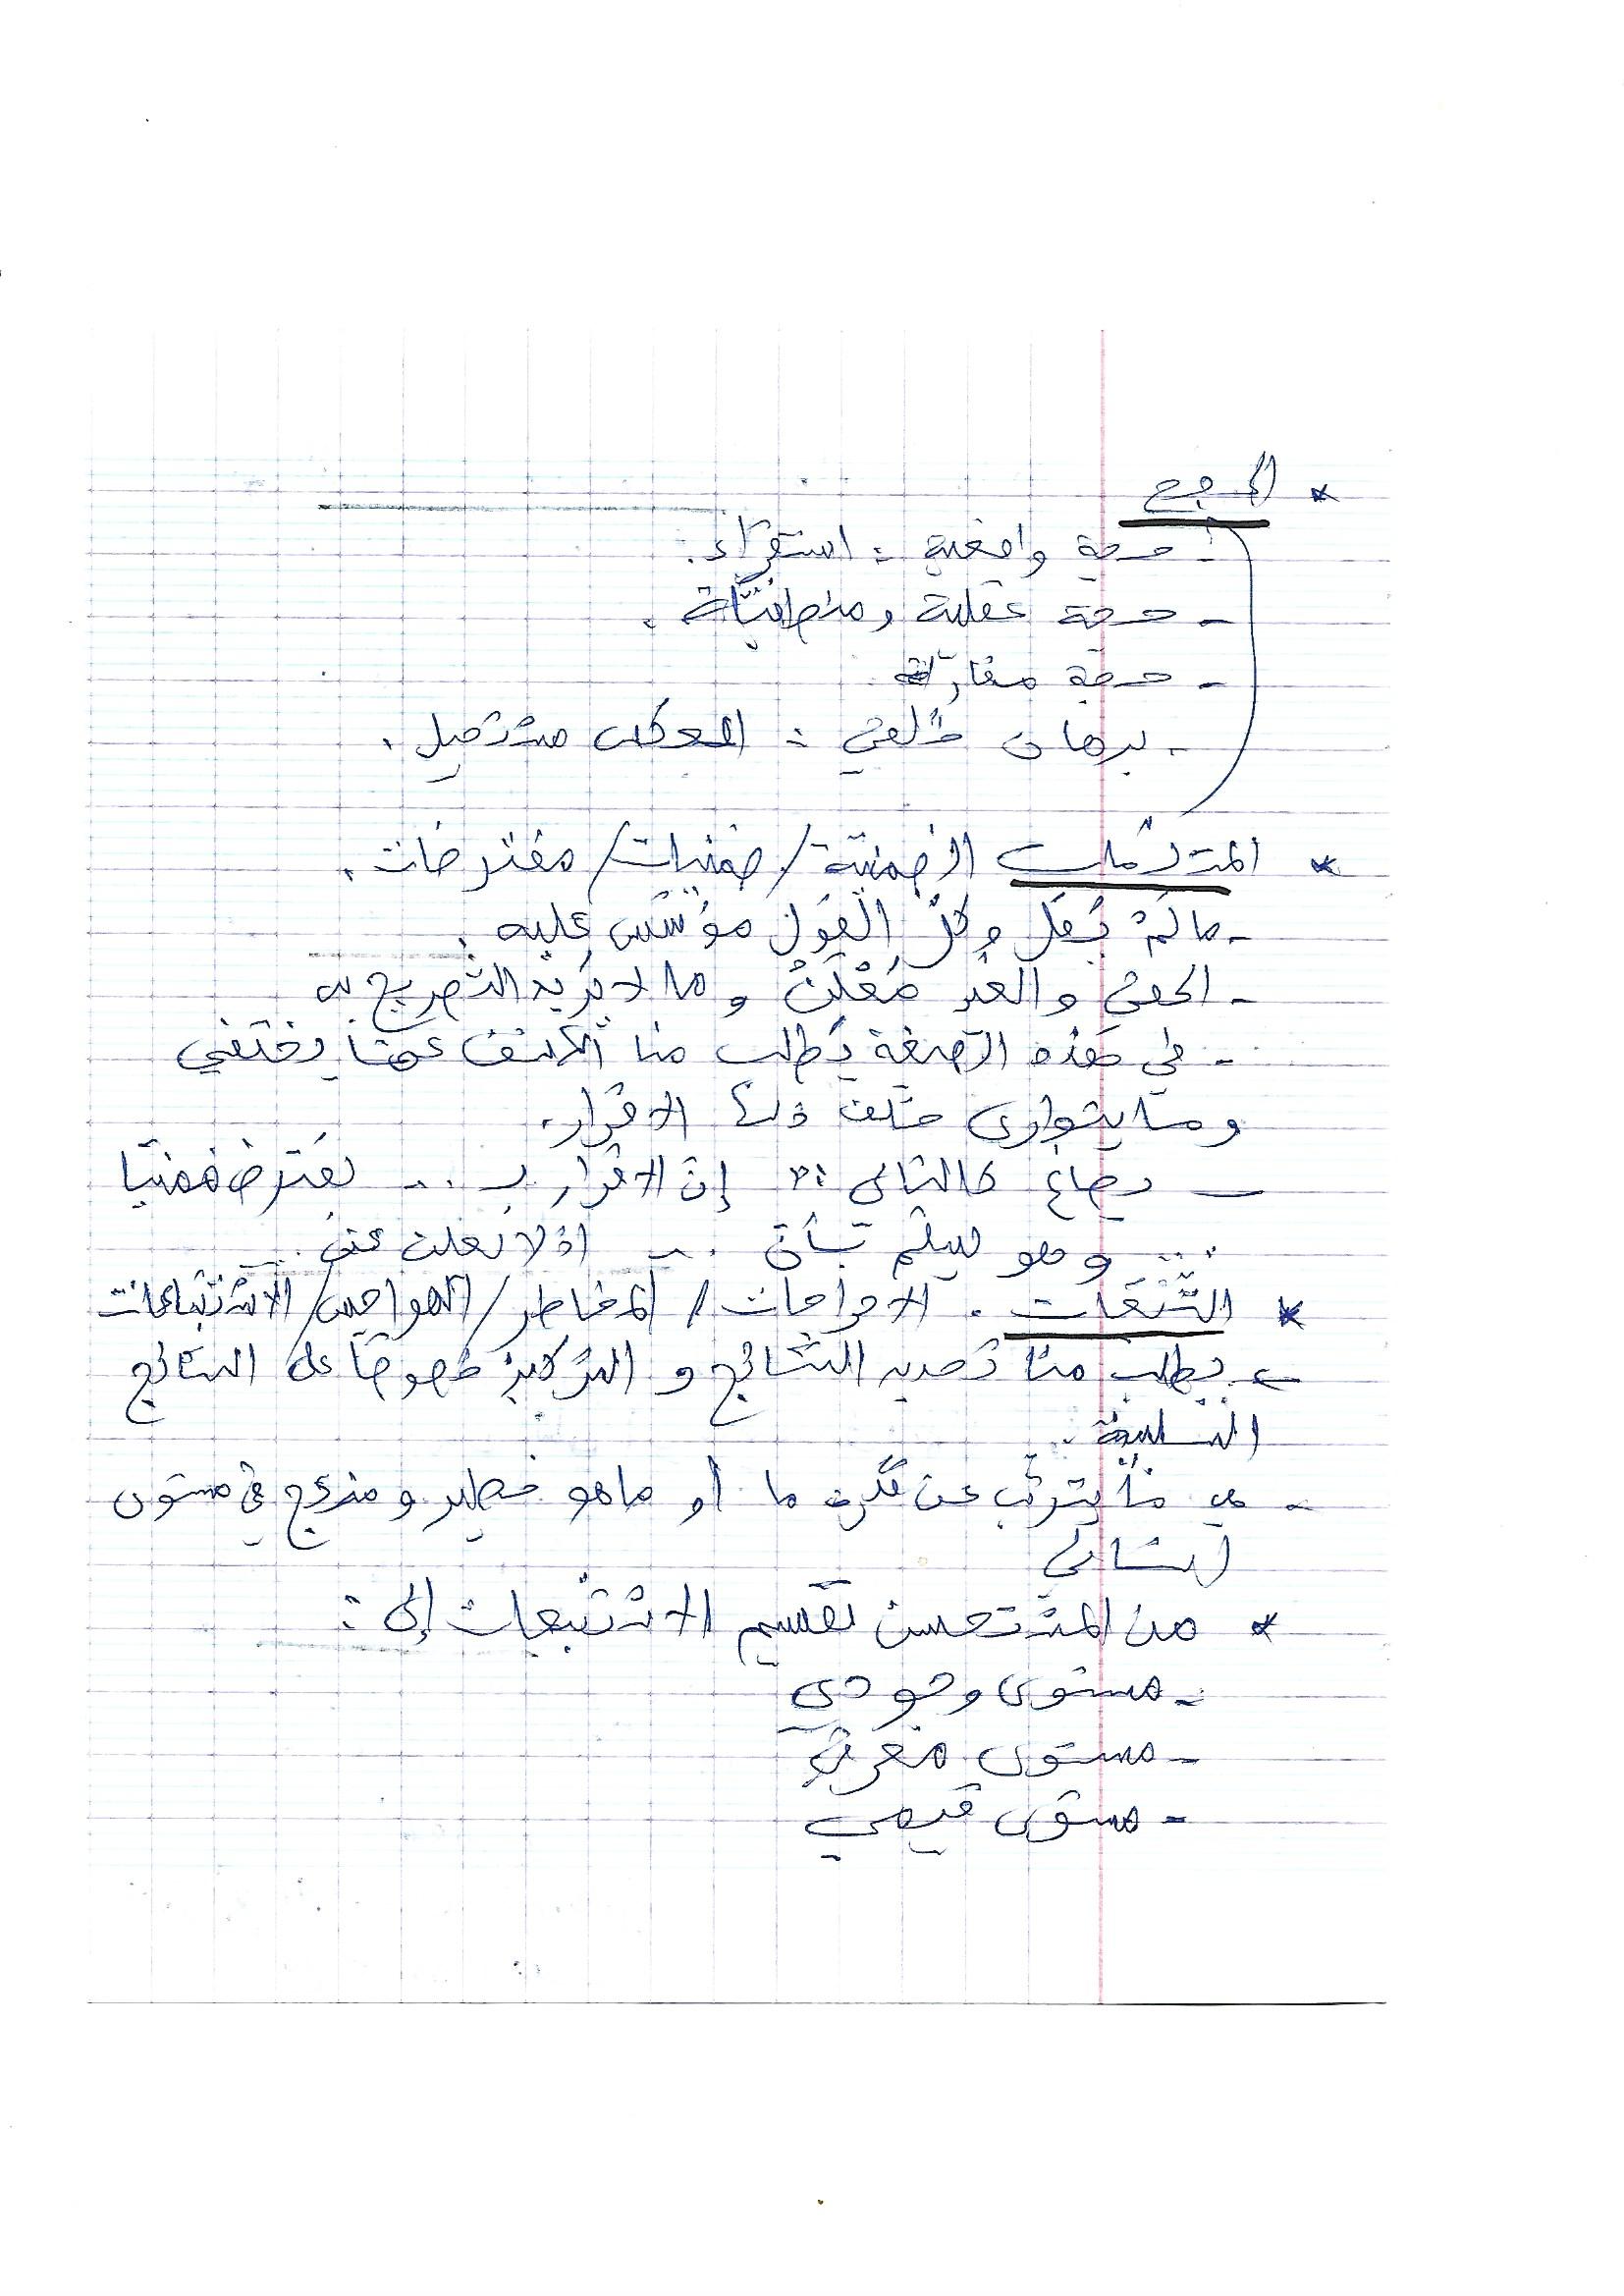 * الحجج
- حجة واقعية : استقراء.
- حجة عقلية ومنطقيّة .
- حجة مقارنة
- برهان خلفي : العكس مستحيل .
* المسلّمات الضمنيّة / ضمنيات / مفترضات .
- ما لَمْ يُقَل وكلّ القَول مؤسّس عليه .
- الخفي والغير مُعْلَنْ و ما لا يُريد التصريح به
- في هذه الصيغة يُطلب منا الكشف عمّا يختفي
وما يتوارى خلف ذلك الاقرار.
- يصاغ كالتالي : إنّ الاقرار بـ ... يفترض ضمنيّا
... وهو يسلّم بأنّ ...
* التّبعات . الاحراجات / المخاطر / الهواجس / الاستتباعات
- يطلب منّا تحديد النتائج و التركيز خصوصًا على النتائج
السلبيّة .
- هي ما يترتّب عن فكرة ما أو ما هو خطير و مزعج في مستوى
النتائج
* من المستحسن تقسيم الاستتبعات إلى :
- مستوى وجودي
- مستوى معرفي
- مستوى قيمي